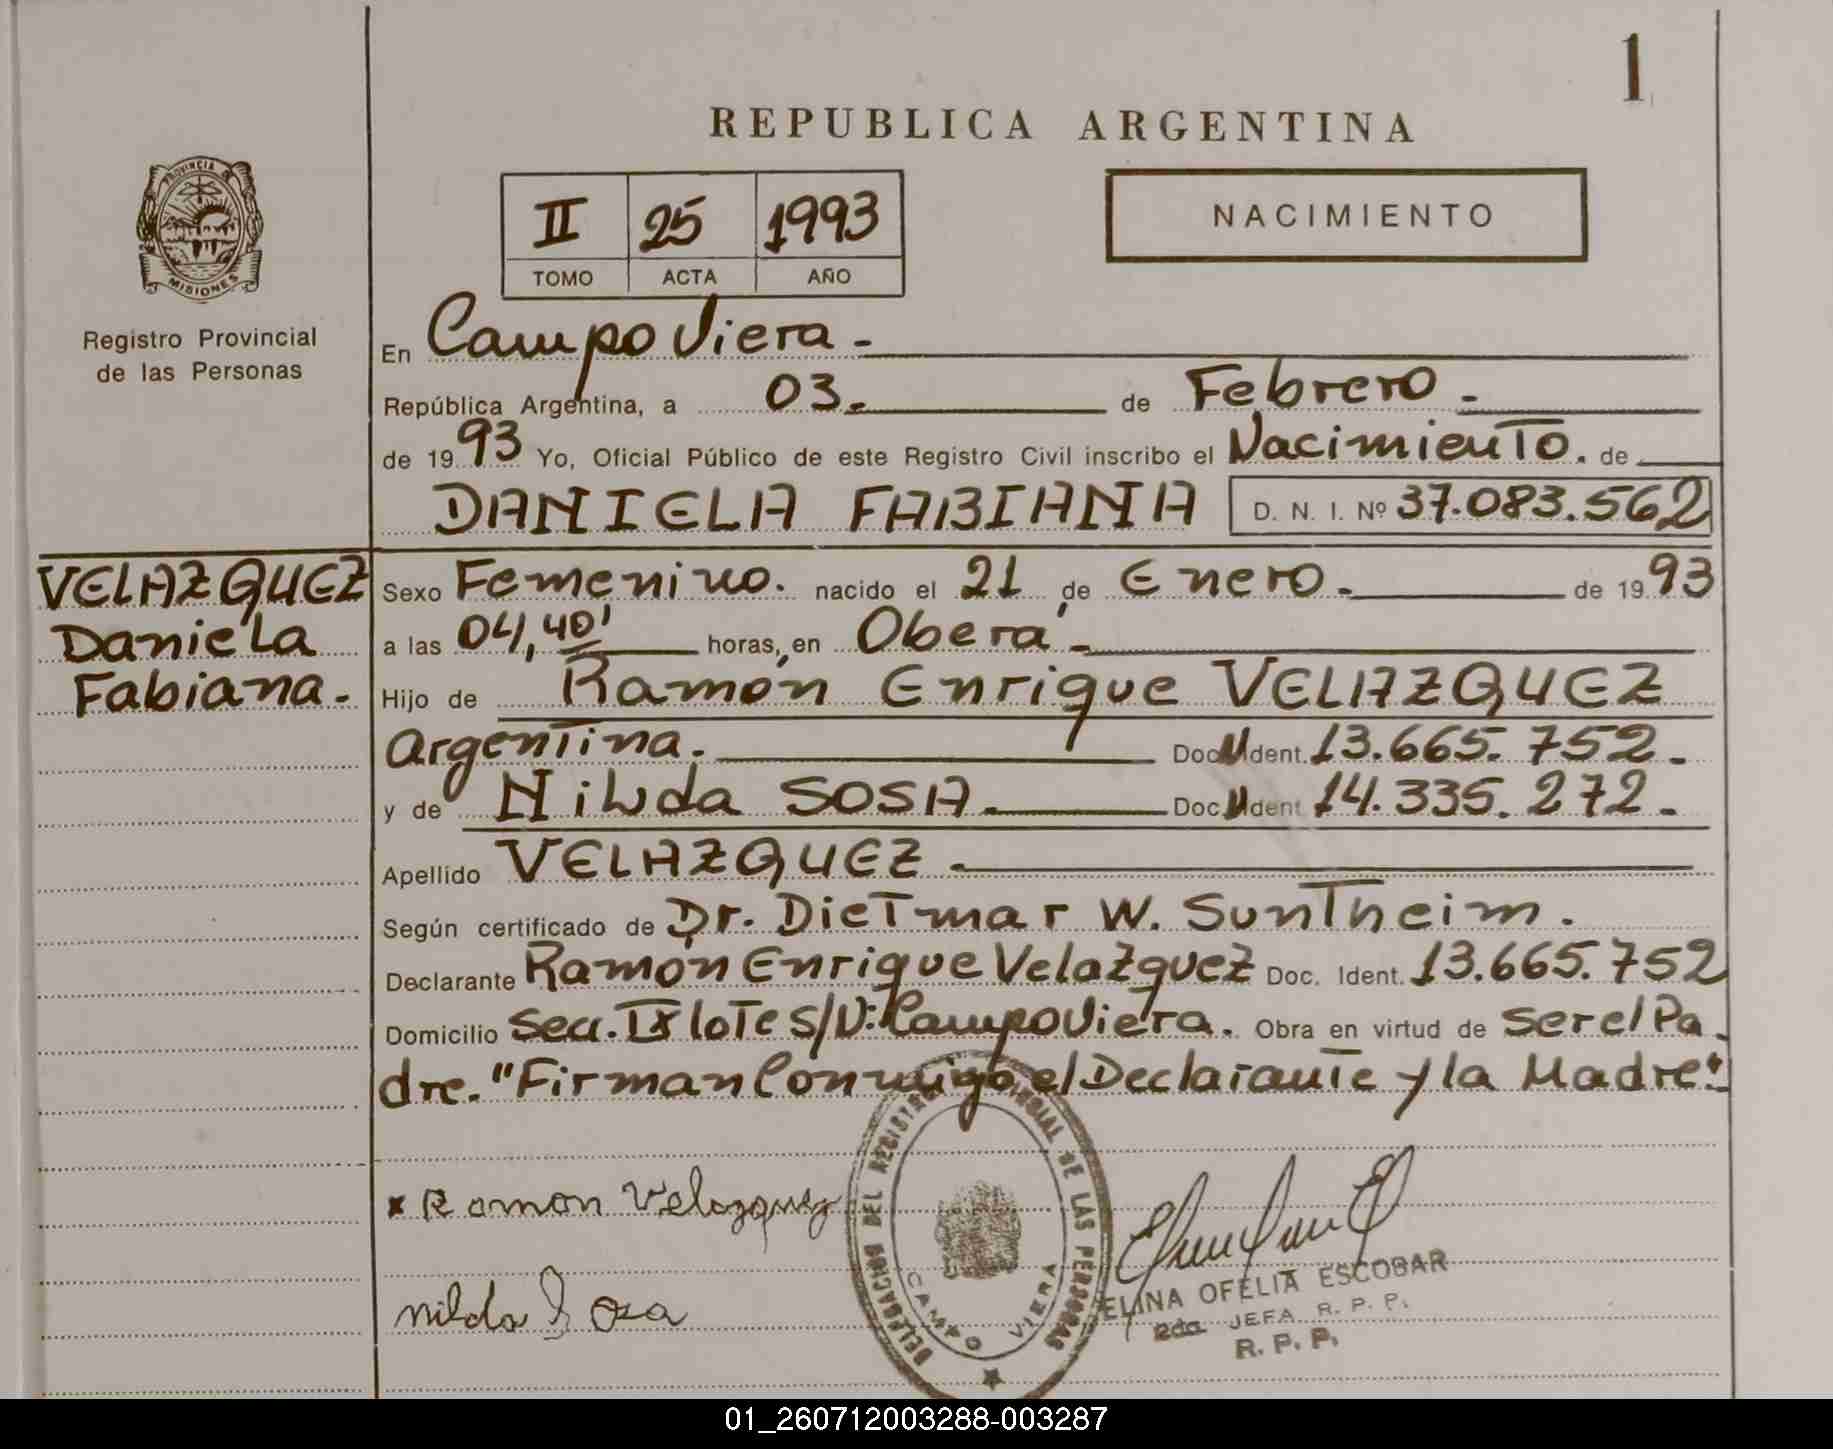 1
REPUBLICA ARGENTINA
PROVINCIA DE
MISIONES
Registro Provincial
de las Personas
II 25 1993
TOMO ACTA AÑO
NACIMIENTO
En Campo Viera.-
República Argentina, a 03.- de Febrero.-
de 1993 Yo, Oficial Público de este Registro Civil inscribo el Nacimiento. de
DANIELA FABIANA D. N. I. Nº 37.083.562
VELAZQUEZ
Daniela
Fabiana.-
Sexo Femenino. nacido el 21 de Enero.- de 1993
a las 04,40' horas, en Oberá.-
Hijo de Ramón Enrique VELAZQUEZ
Argentina. Doc. Ident. 13.665.752.-
y de Nilda SOSA. Doc. Ident. 14.335.272.-
Apellido VELAZQUEZ.-
Según certificado de Dr. Dietmar W. Suntheim.
Declarante Ramon Enrique Velazquez Doc. Ident. 13.665.752
Domicilio Secc. IX lote S/N: Campo Viera. Obra en virtud de ser el Pa-
dre. "Firman Conmigo el Declarante y la Madre".
x Ramon Velazquez
Nilda Sosa
DELEGACION DEL REGISTRO PROVINCIAL DE LAS PERSONAS
CAMPO VIERA
ELINA OFELIA ESCOBAR
2da JEFA R. P. P.
R. P. P.
01_260712003288-003287